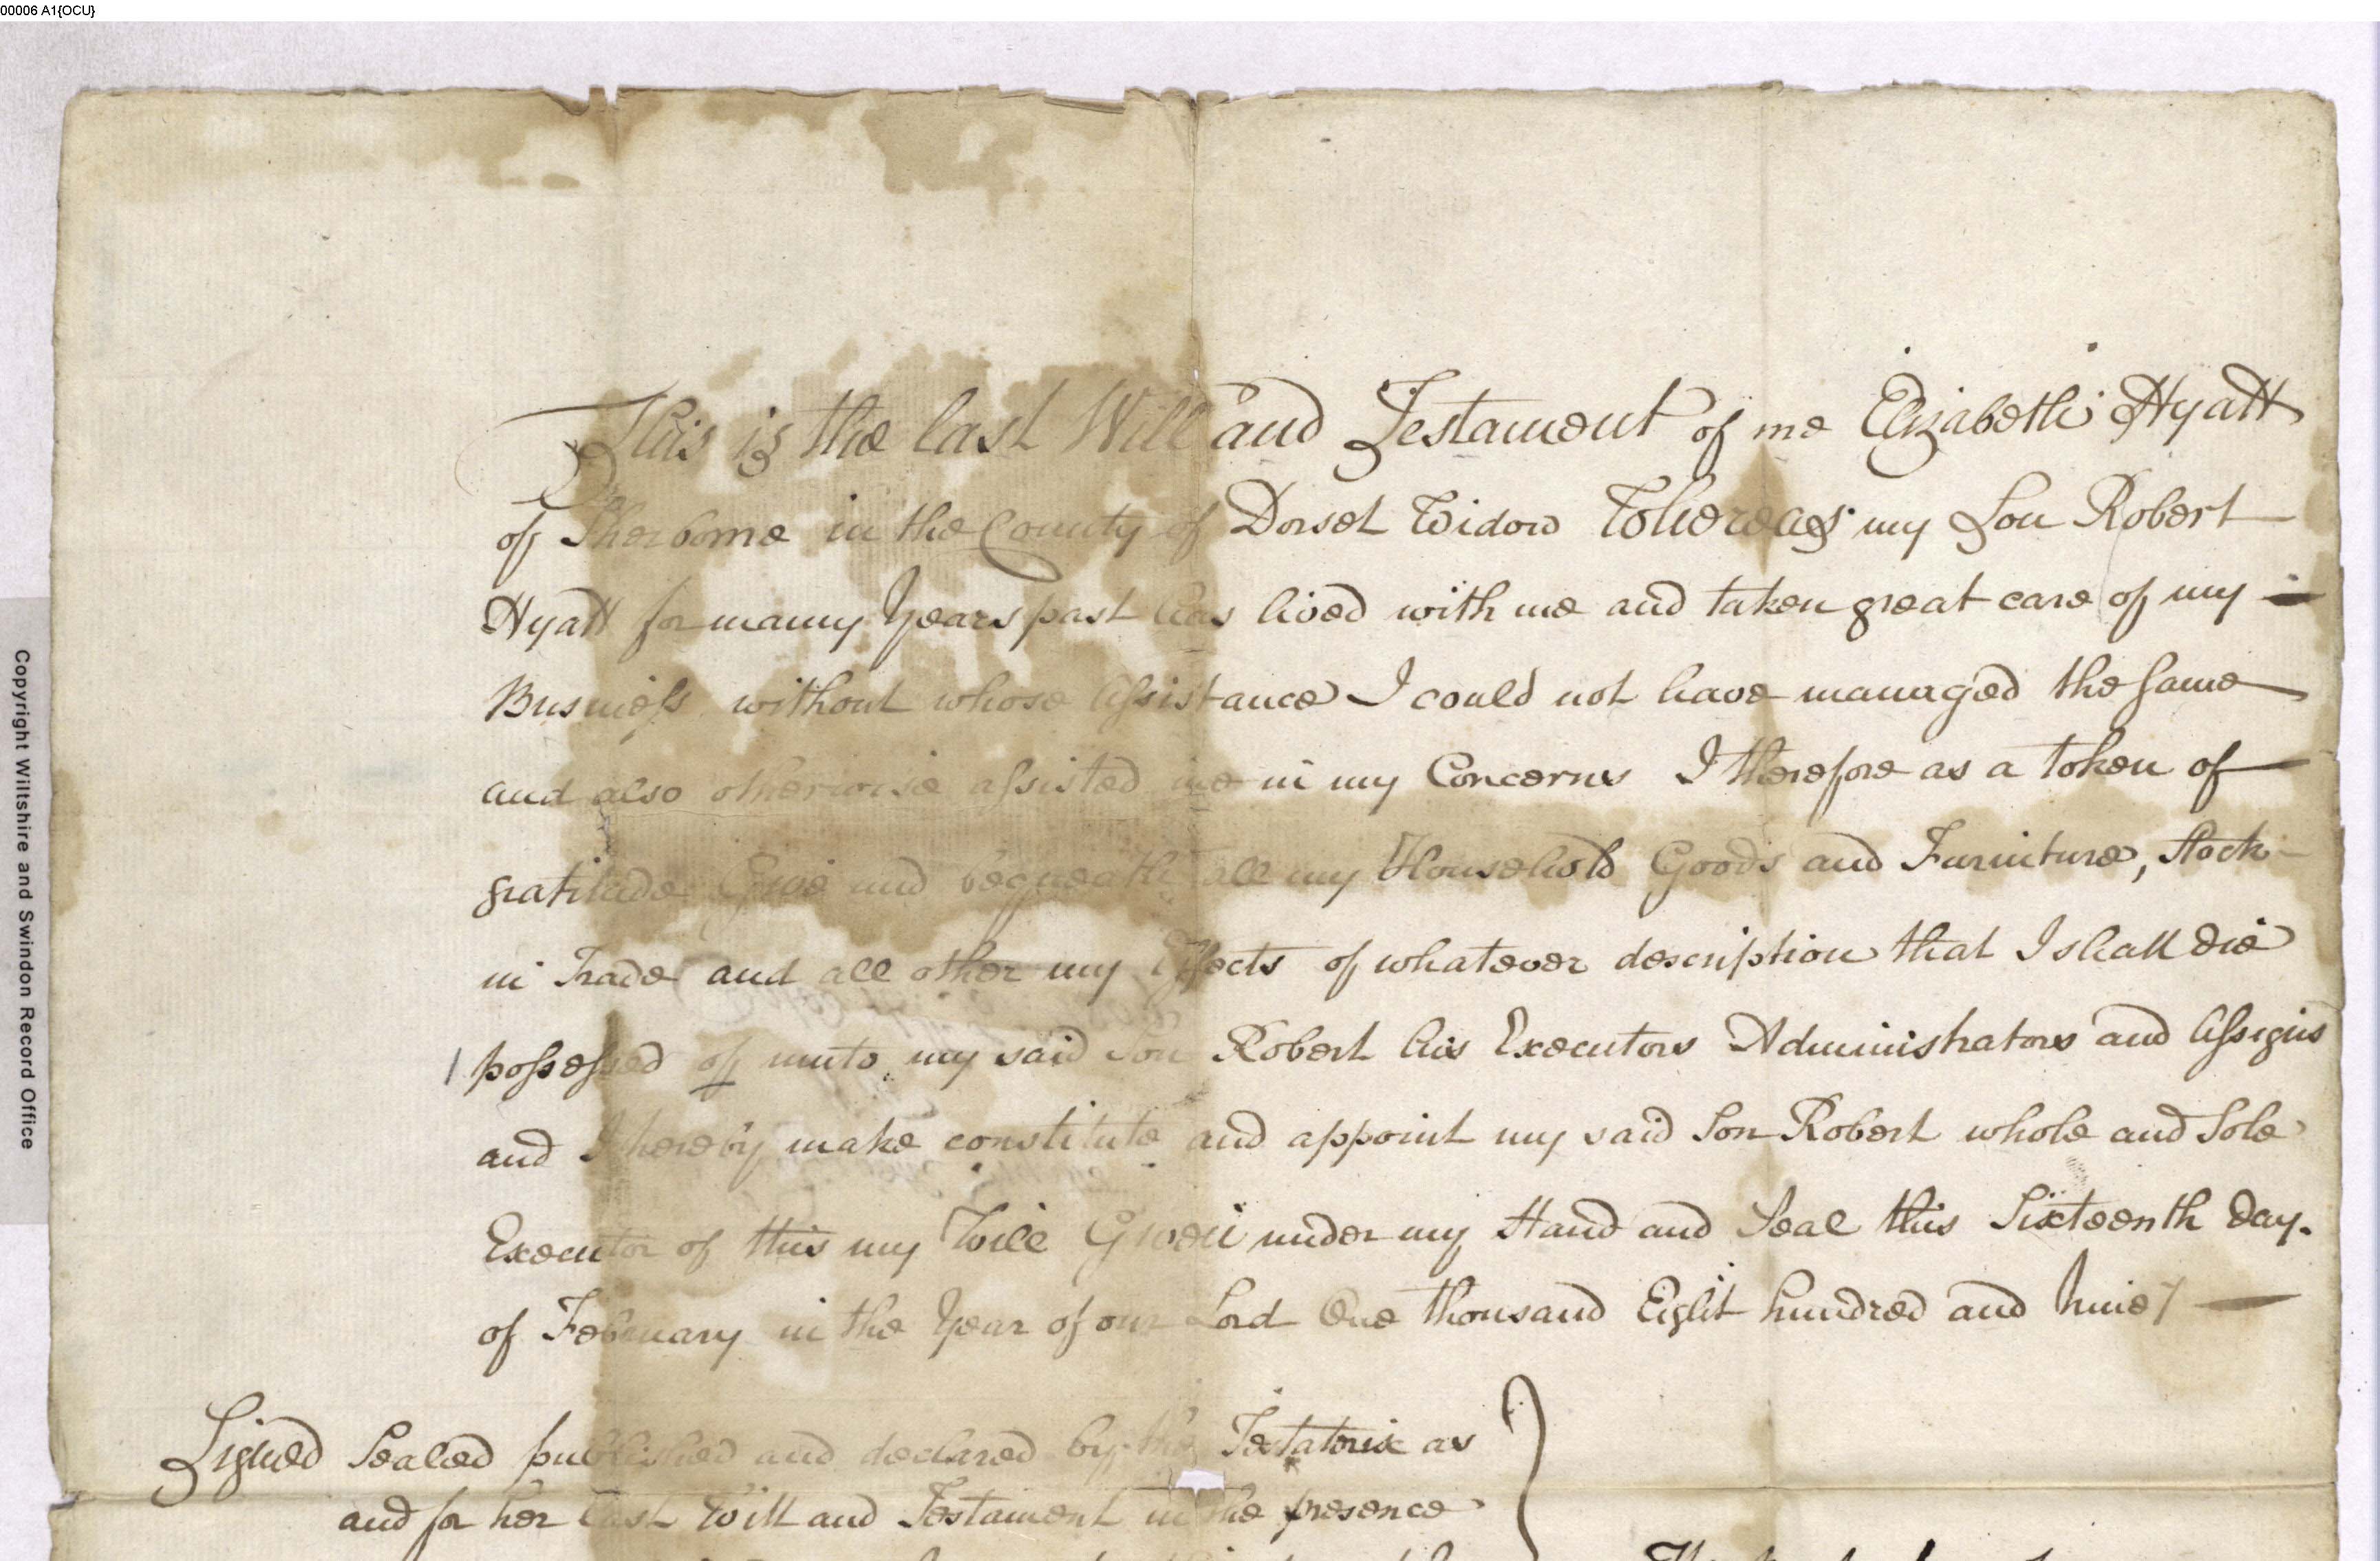 00006 A1{OCU}
Copyright Wiltshire and Swindon Record Office
This is the last Will and Testament of me Elizabeth Hyatt
of Sherborne in the County of Dorset Widow Whereas my Son Robert
Hyatt for many Years past has lived with me and taken great care of my
Business without whose Assistance I could not have managed the same
and also otherwise assisted me in my Concerns I therefore as a token of
gratitude Give and bequeath all my Household Goods and Furniture, Stock
in Trade and all other my Effects of whatever description that I shall die
possessed of unto my said Son Robert his Executors Administrators and Assigns
and I hereby make constitute and appoint my said Son Robert whole and Sole
Executor of this my Will Given under my Hand and Seal this Sixteenth day.
of February in the Year of our Lord One thousand Eight hundred and nine
Signed Sealed published and declared by the Testatrix as
and for her last Will and Testament in the presence